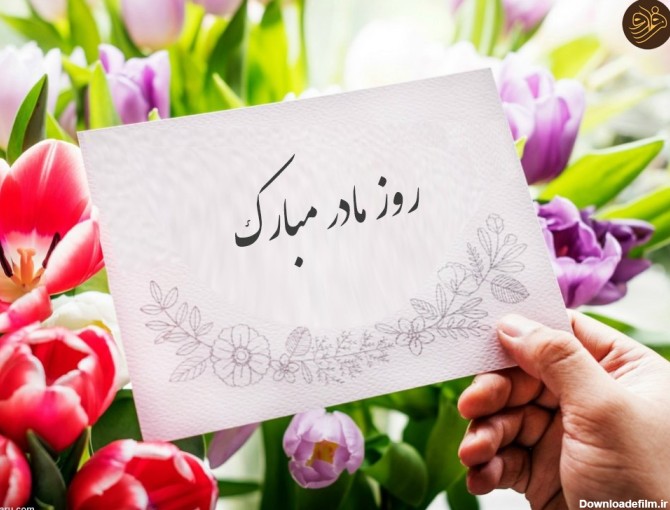 روز مادر مبارک
Downloadefilm.ir